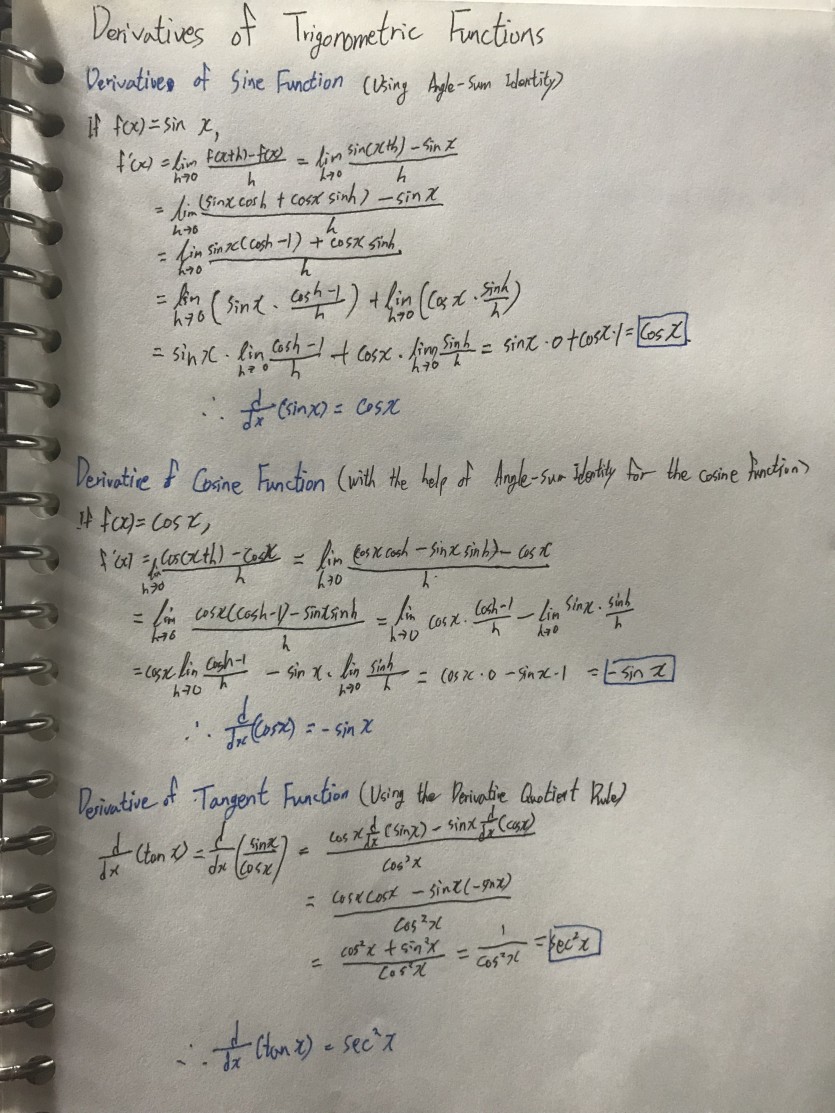 Derivatives of Trigonometric Functions
Derivatives of Sine Function (Using Angle-Sum Identity)
If f(x) = sin x,
f'(x) = lim_{h→0} (f(x+h)-f(x))/h = lim_{h→0} (sin(x+h) - sin x)/h
= lim_{h→0} ((sinx cosh + cosx sinh) - sinx)/h
= lim_{h→0} (sinx(cosh-1) + cosx sinh)/h
= lim_{h→0} (sinx · (cosh-1)/h) + lim_{h→0} (cosx · sinh/h)
= sinx · lim_{h→0} (cosh-1)/h + cosx · lim_{h→0} sinh/h = sinx·0+cosx·1 = cosx.
∴ d/dx (sinx) = cosx
Derivative of Cosine Function (with the help of Angle-sum Identity for the cosine function)
If f(x) = cosx,
f'(x) = lim_{h→0} (cos(x+h) - cosx)/h = lim_{h→0} ((cosx cosh - sinx sinh) - cosx)/h
= lim_{h→0} (cosx(cosh-1) - sinxsinh)/h = lim_{h→0} cosx · (cosh-1)/h - lim_{h→0} sinx · sinh/h
= cosx lim_{h→0} (cosh-1)/h - sinx · lim_{h→0} sinh/h = cosx·0 - sinx·1 = -sinx
∴ d/dx (cosx) = -sinx
Derivative of Tangent Function (Using the Derivative Quotient Rule)
d/dx (tanx) = d/dx (sinx/cosx) = (cosx d/dx (sinx) - sinx d/dx (cosx))/cos²x
= (cosxcosx - sinx(-sinx))/cos²x
= (cos²x + sin²x)/cos²x = 1/cos²x = sec²x
∴ d/dx (tanx) = sec²x